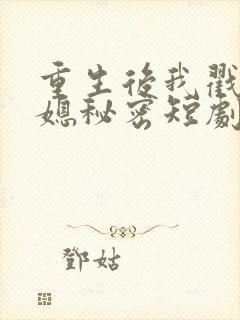 重生後我戳
媳秘密短劇
鄧姑